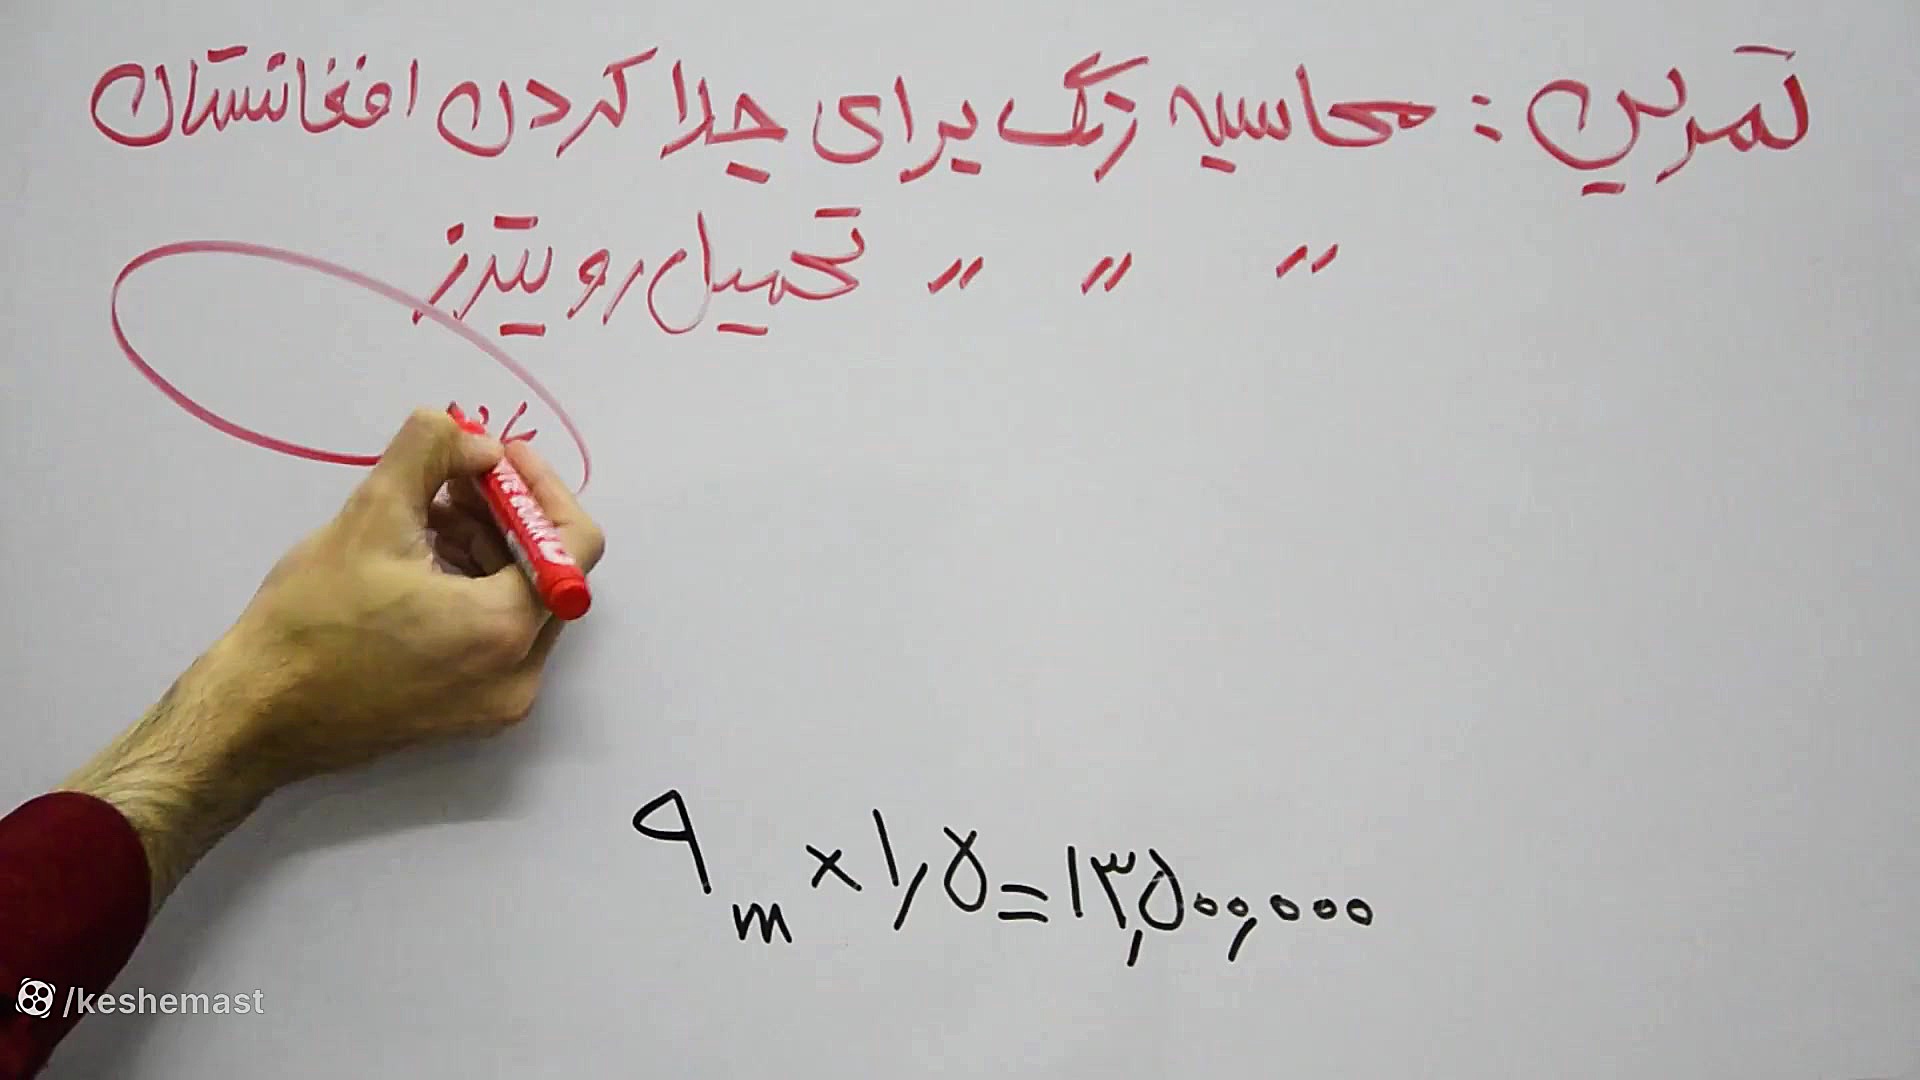 تمرین : محاسبه رنگ برای جلا کردن افغانستان
〃 〃 〃 تحمیل رویترز
۹m × ۱٫۵ = ۱۳,۵۰۰,۰۰۰
/keshemast